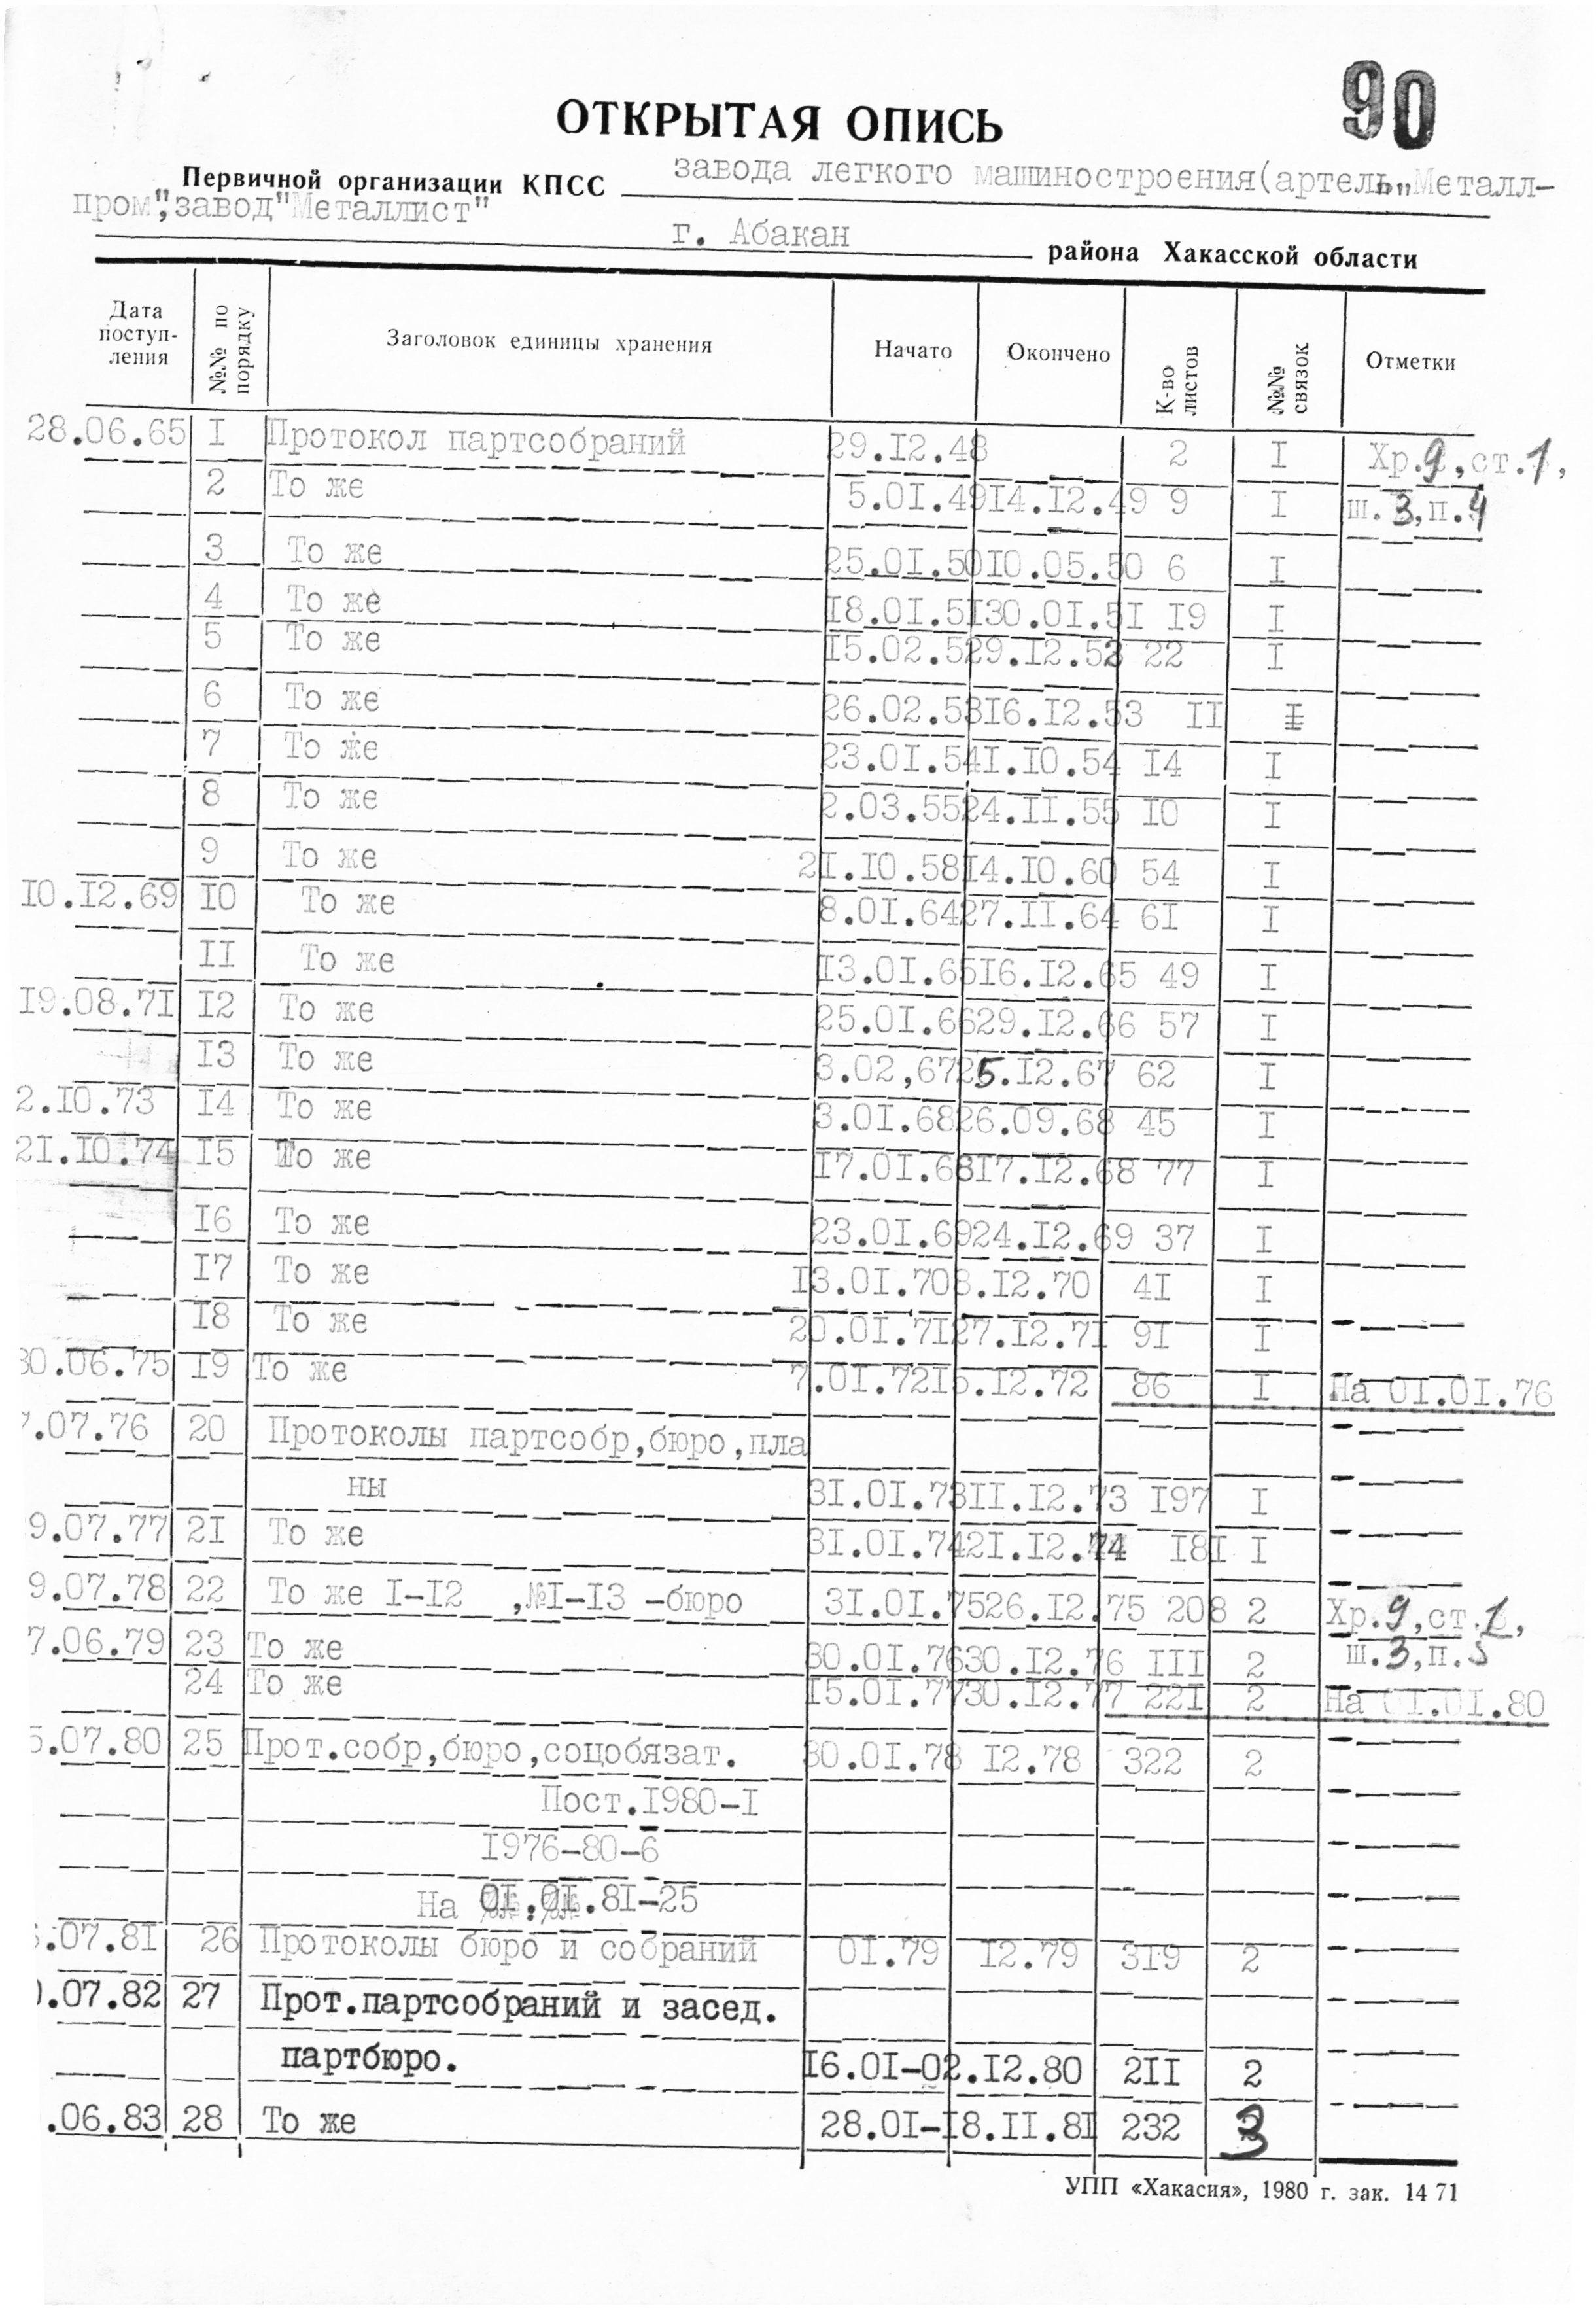 90
ОТКРЫТАЯ ОПИСЬ
Первичной организации КПСС завода легкого машиностроения(артель„Металл-
пром",завод"Металлист"
г. Абакан района Хакасской области
Дата поступ- ления №№ по порядку Заголовок единицы хранения Начато Окончено К-во листов №№ связок Отметки
28.06.65 I Протокол партсобраний 29.I2.48 2 I Хр.9,ст.1,
2 То же 5.0I.49 I4.I2.49 9 I ш.3,п.4
3 То же 25.0I.50 I0.05.50 6 I
4 То же I8.0I.5I 30.0I.5I I9 I
5 То же I5.02.52 9.I2.52 22 I
6 То же 26.02.53 I6.I2.53 II I
7 То же 23.0I.54 I.I0.54 I4 I
8 То же 2.03.55 24.II.55 I0 I
9 То же 2I.I0.58 I4.I0.60 54 I
I0.I2.69 I0 То же 8.0I.64 27.II.64 6I I
II То же I3.0I.65 I6.I2.65 49 I
I9.08.7I I2 То же 25.0I.66 29.I2.66 57 I
I3 То же 3.02,67 25.I2.67 62 I
2.I0.73 I4 То же 3.0I.68 26.09.68 45 I
2I.I0.74 I5 То же I7.0I.68 I7.I2.68 77 I
I6 То же 23.0I.69 24.I2.69 37 I
I7 То же I3.0I.70 8.I2.70 4I I
I8 То же 20.0I.7I 27.I2.7I 9I I
30.06.75 I9 То же 7.0I.72 I5.I2.72 86 I На 0I.0I.76
7.07.76 20 Протоколы партсобр,бюро,пла
ны 3I.0I.73 II.I2.73 I97 I
9.07.77 2I То же 3I.0I.74 2I.I2.74 I8I I
9.07.78 22 То же I-I2 ,№I-I3 -бюро 3I.0I.75 26.I2.75 208 2 Хр.9,ст.1,
7.06.79 23 То же 30.0I.76 30.I2.76 III 2 ш.3,п.5
24 То же I5.0I.77 30.I2.77 22I 2 На 0I.0I.80
5.07.80 25 Прот.собр,бюро,соцобязат. 30.0I.78 I2.78 322 2
Пост.I980-I
I976-80-6
На 0I.0I.8I-25
.07.8I 26 Протоколы бюро и собраний 0I.79 I2.79 3I9 2
.07.82 27 Прот.партсобраний и засед.
партбюро. I6.0I-02.I2.80 2II 2
.06.83 28 То же 28.0I-I8.II.8I 232 3
УПП «Хакасия», 1980 г. зак. 14 71